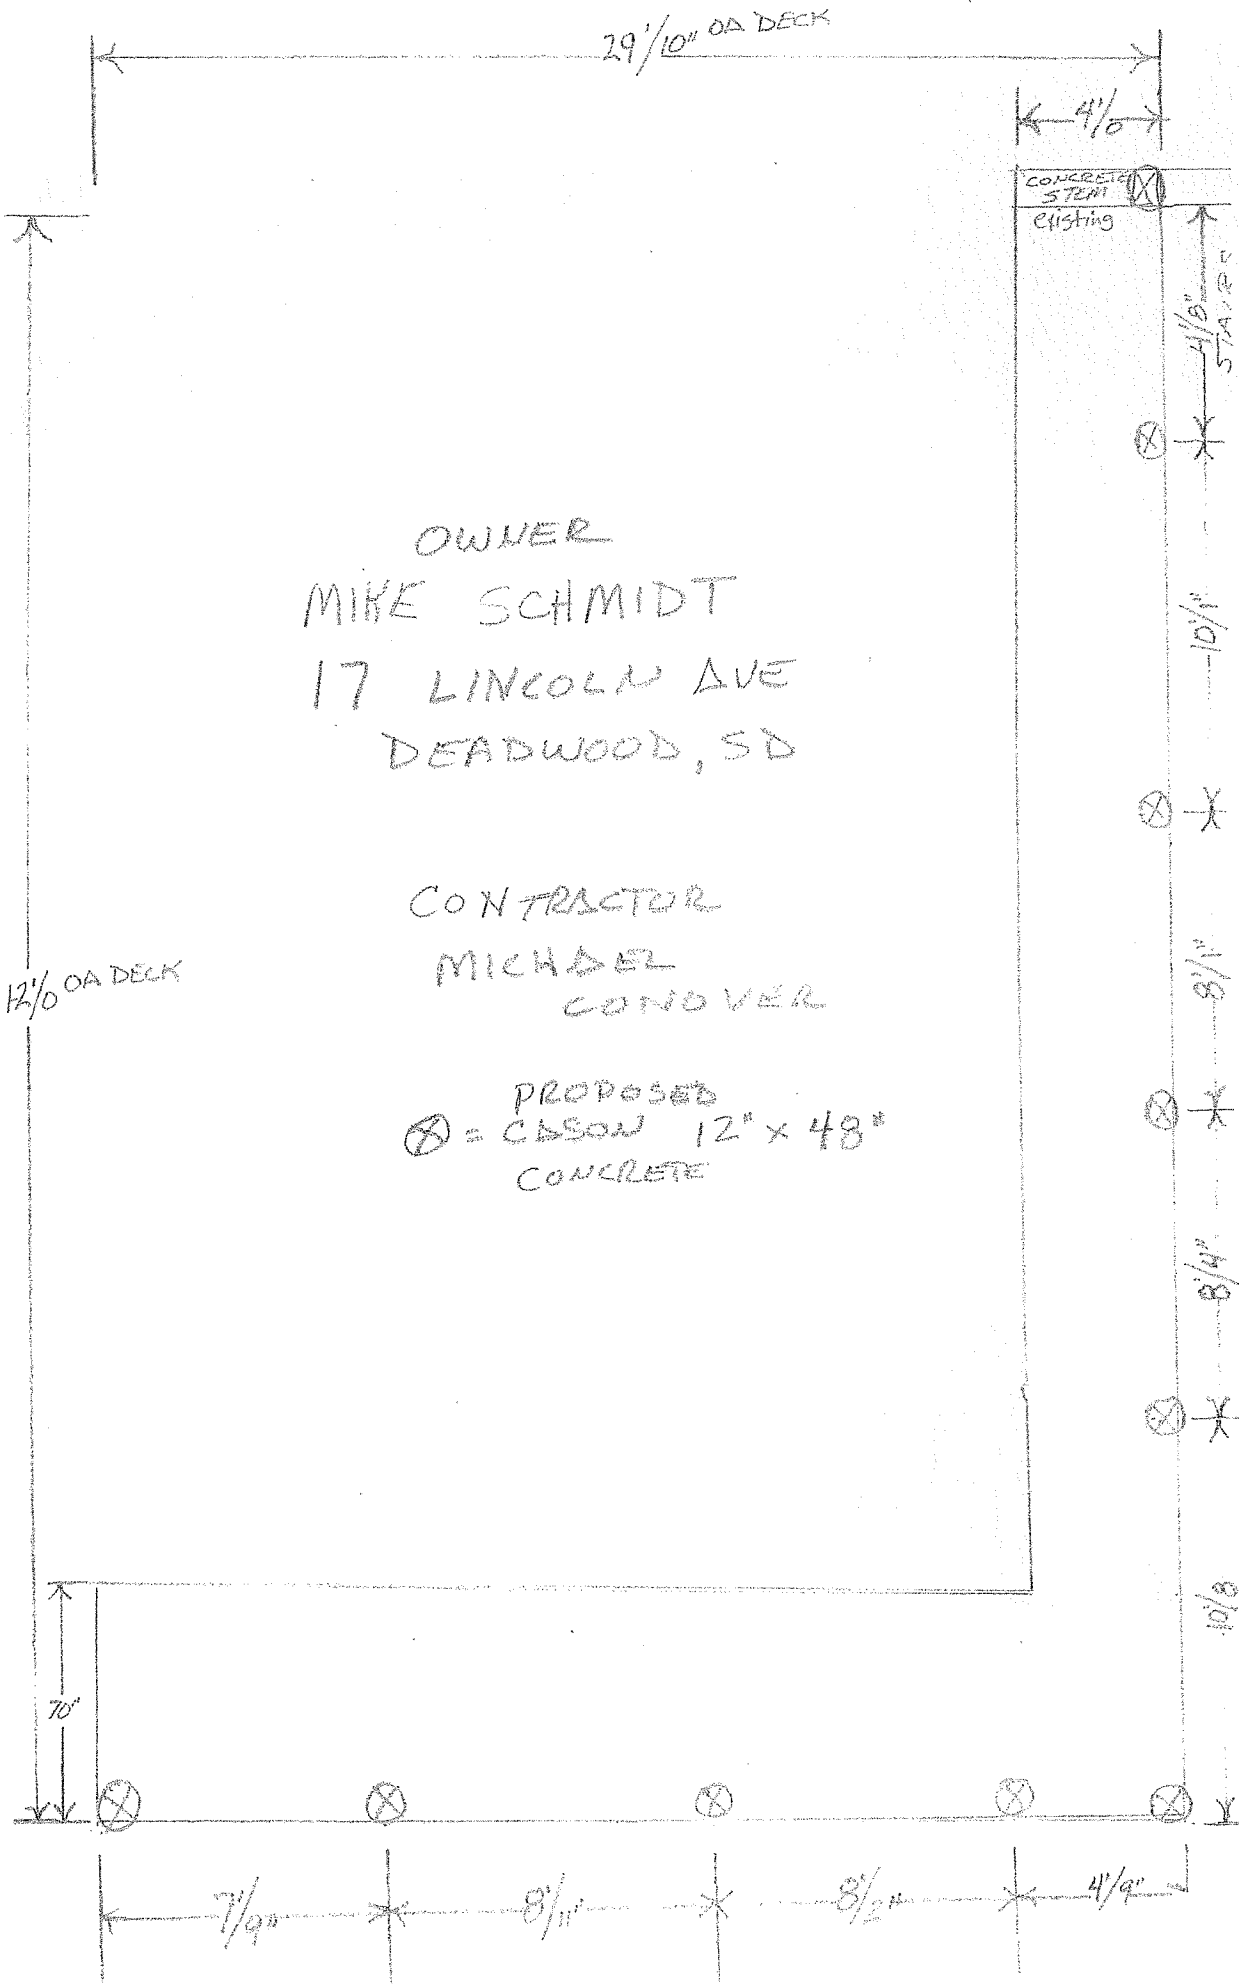 29'/10" OA DECK
4'/0
CONCRETE
STEM
existing
4'/8"
STAIRS
OWNER
MIKE SCHMIDT
17 LINCOLN AVE
DEADWOOD, SD
10'/1"
CONTRACTOR
MICHAEL
CONOVER
8'/1"
OA DECK
PROPOSED
= CASON 12" x 48"
CONCRETE
8'/4"
10'/8
70"
7'/9"
8'/11"
8'/2"
4'/9"